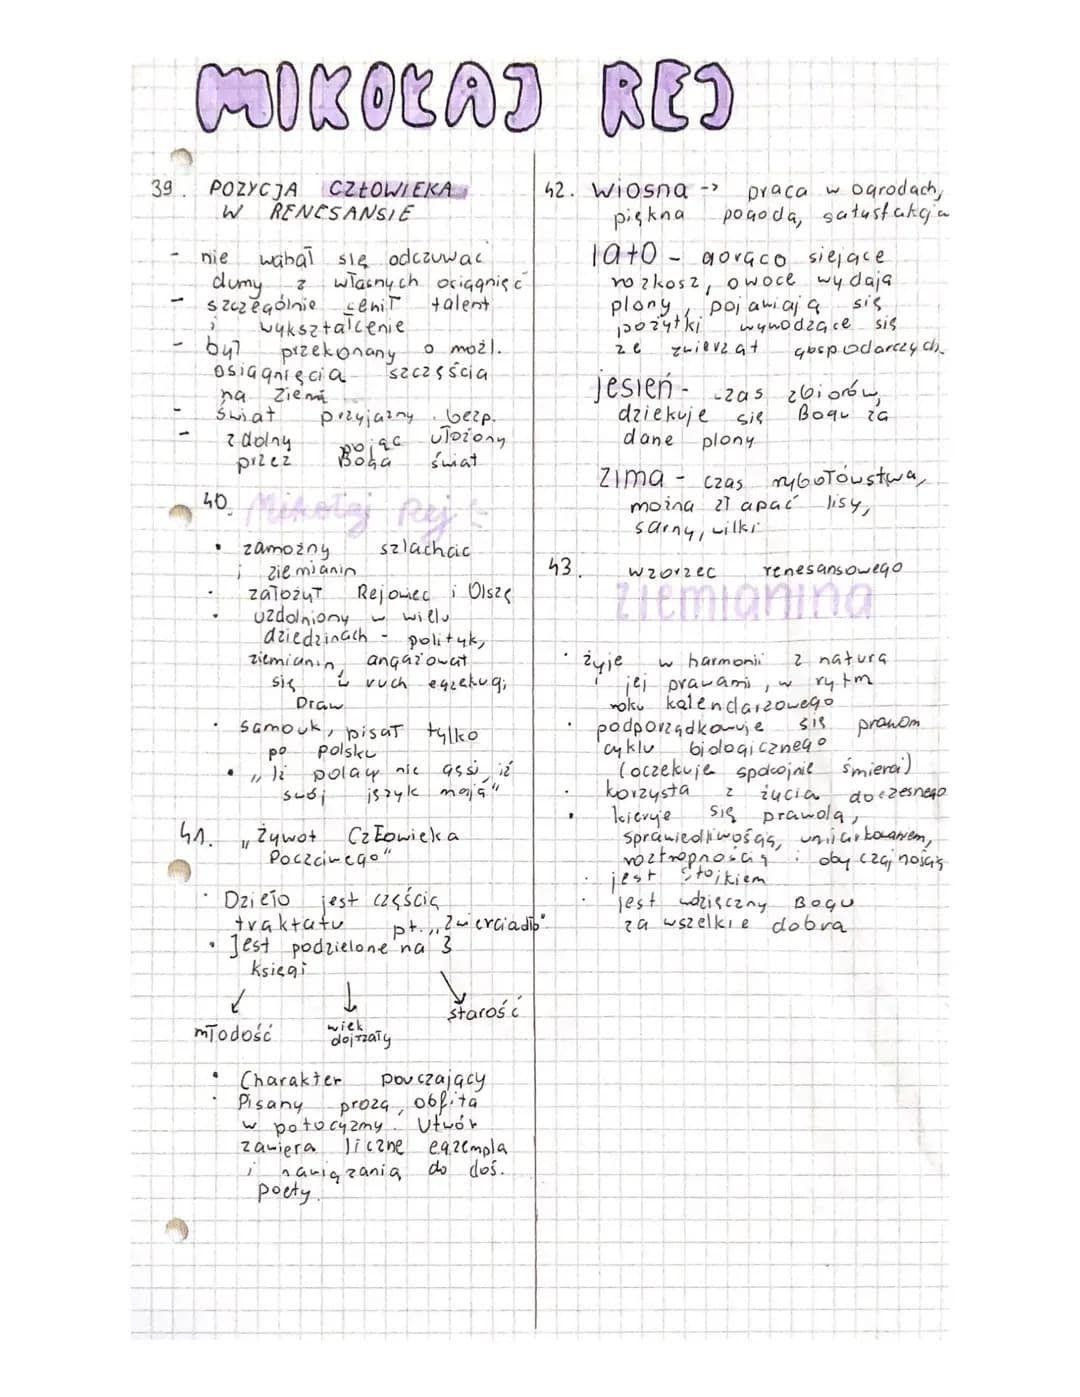 MIKOŁAJ REJ
39. POZYCJA CZŁOWIEKA
W RENESANSIE
- nie wahał się odczuwać
dumy z własnych osiągnięć
- szczególnie cenił talent
i wykształcenie
- był przekonany o możl.
osiągnięcia szczęścia
na Ziemi
- świat przyjazny, bezp.
- zdolny pojąc ułożony
przez Boga świat
40. Mikołaj Rej:
• zamożny szlachcic
i ziemianin
• założył Rejowiec i Olszę
• uzdolniony w wielu
dziedzinach - polityk,
ziemianin, angażował
się w ruch egzekucji
Draw
• samouk, pisał tylko
po polsku
• „Iż polacy nie gęsi, iż
swój język mają"
41. „Żywot Człowieka
Poczciwego"
• Dzieło jest częścią
traktatu pt. „Zwierciadło"
• Jest podzielone na 3
księgi
młodość
wiek
dojrzały
starość
• Charakter pouczający
• Pisany prozą, obfita
w potocyzmy. Utwór
zawiera liczne egzempla
i nawiązania do doś.
poety.
42. wiosna -> praca w ogrodach,
piękna pogoda, satysfakcja
lato - gorąco siejące
rozkosz, owoce wydają
plony, pojawiają się
pożytki wywodzące się
ze zwierząt gospodarczych.
jesień - czas zbiorów,
dziekuje się Bogu za
dane plony
zima - czas rybołówstwa,
można złapać lisy,
sarny, wilki
43. wzorzec renesansowego
ziemianina
• żyje w harmonii z naturą
i jej prawami, w rytm
roku kalendarzowego
• podporządkowuje się prawom
cyklu biologicznego
(oczekuje spokojnie śmierci)
• korzysta z życia doczesnego
• kieruje się prawdą,
sprawiedliwością, umiarkowaniem,
roztropnością i obyczajnością
• jest stoikiem
• jest wdzięczny Bogu
za wszelkie dobra